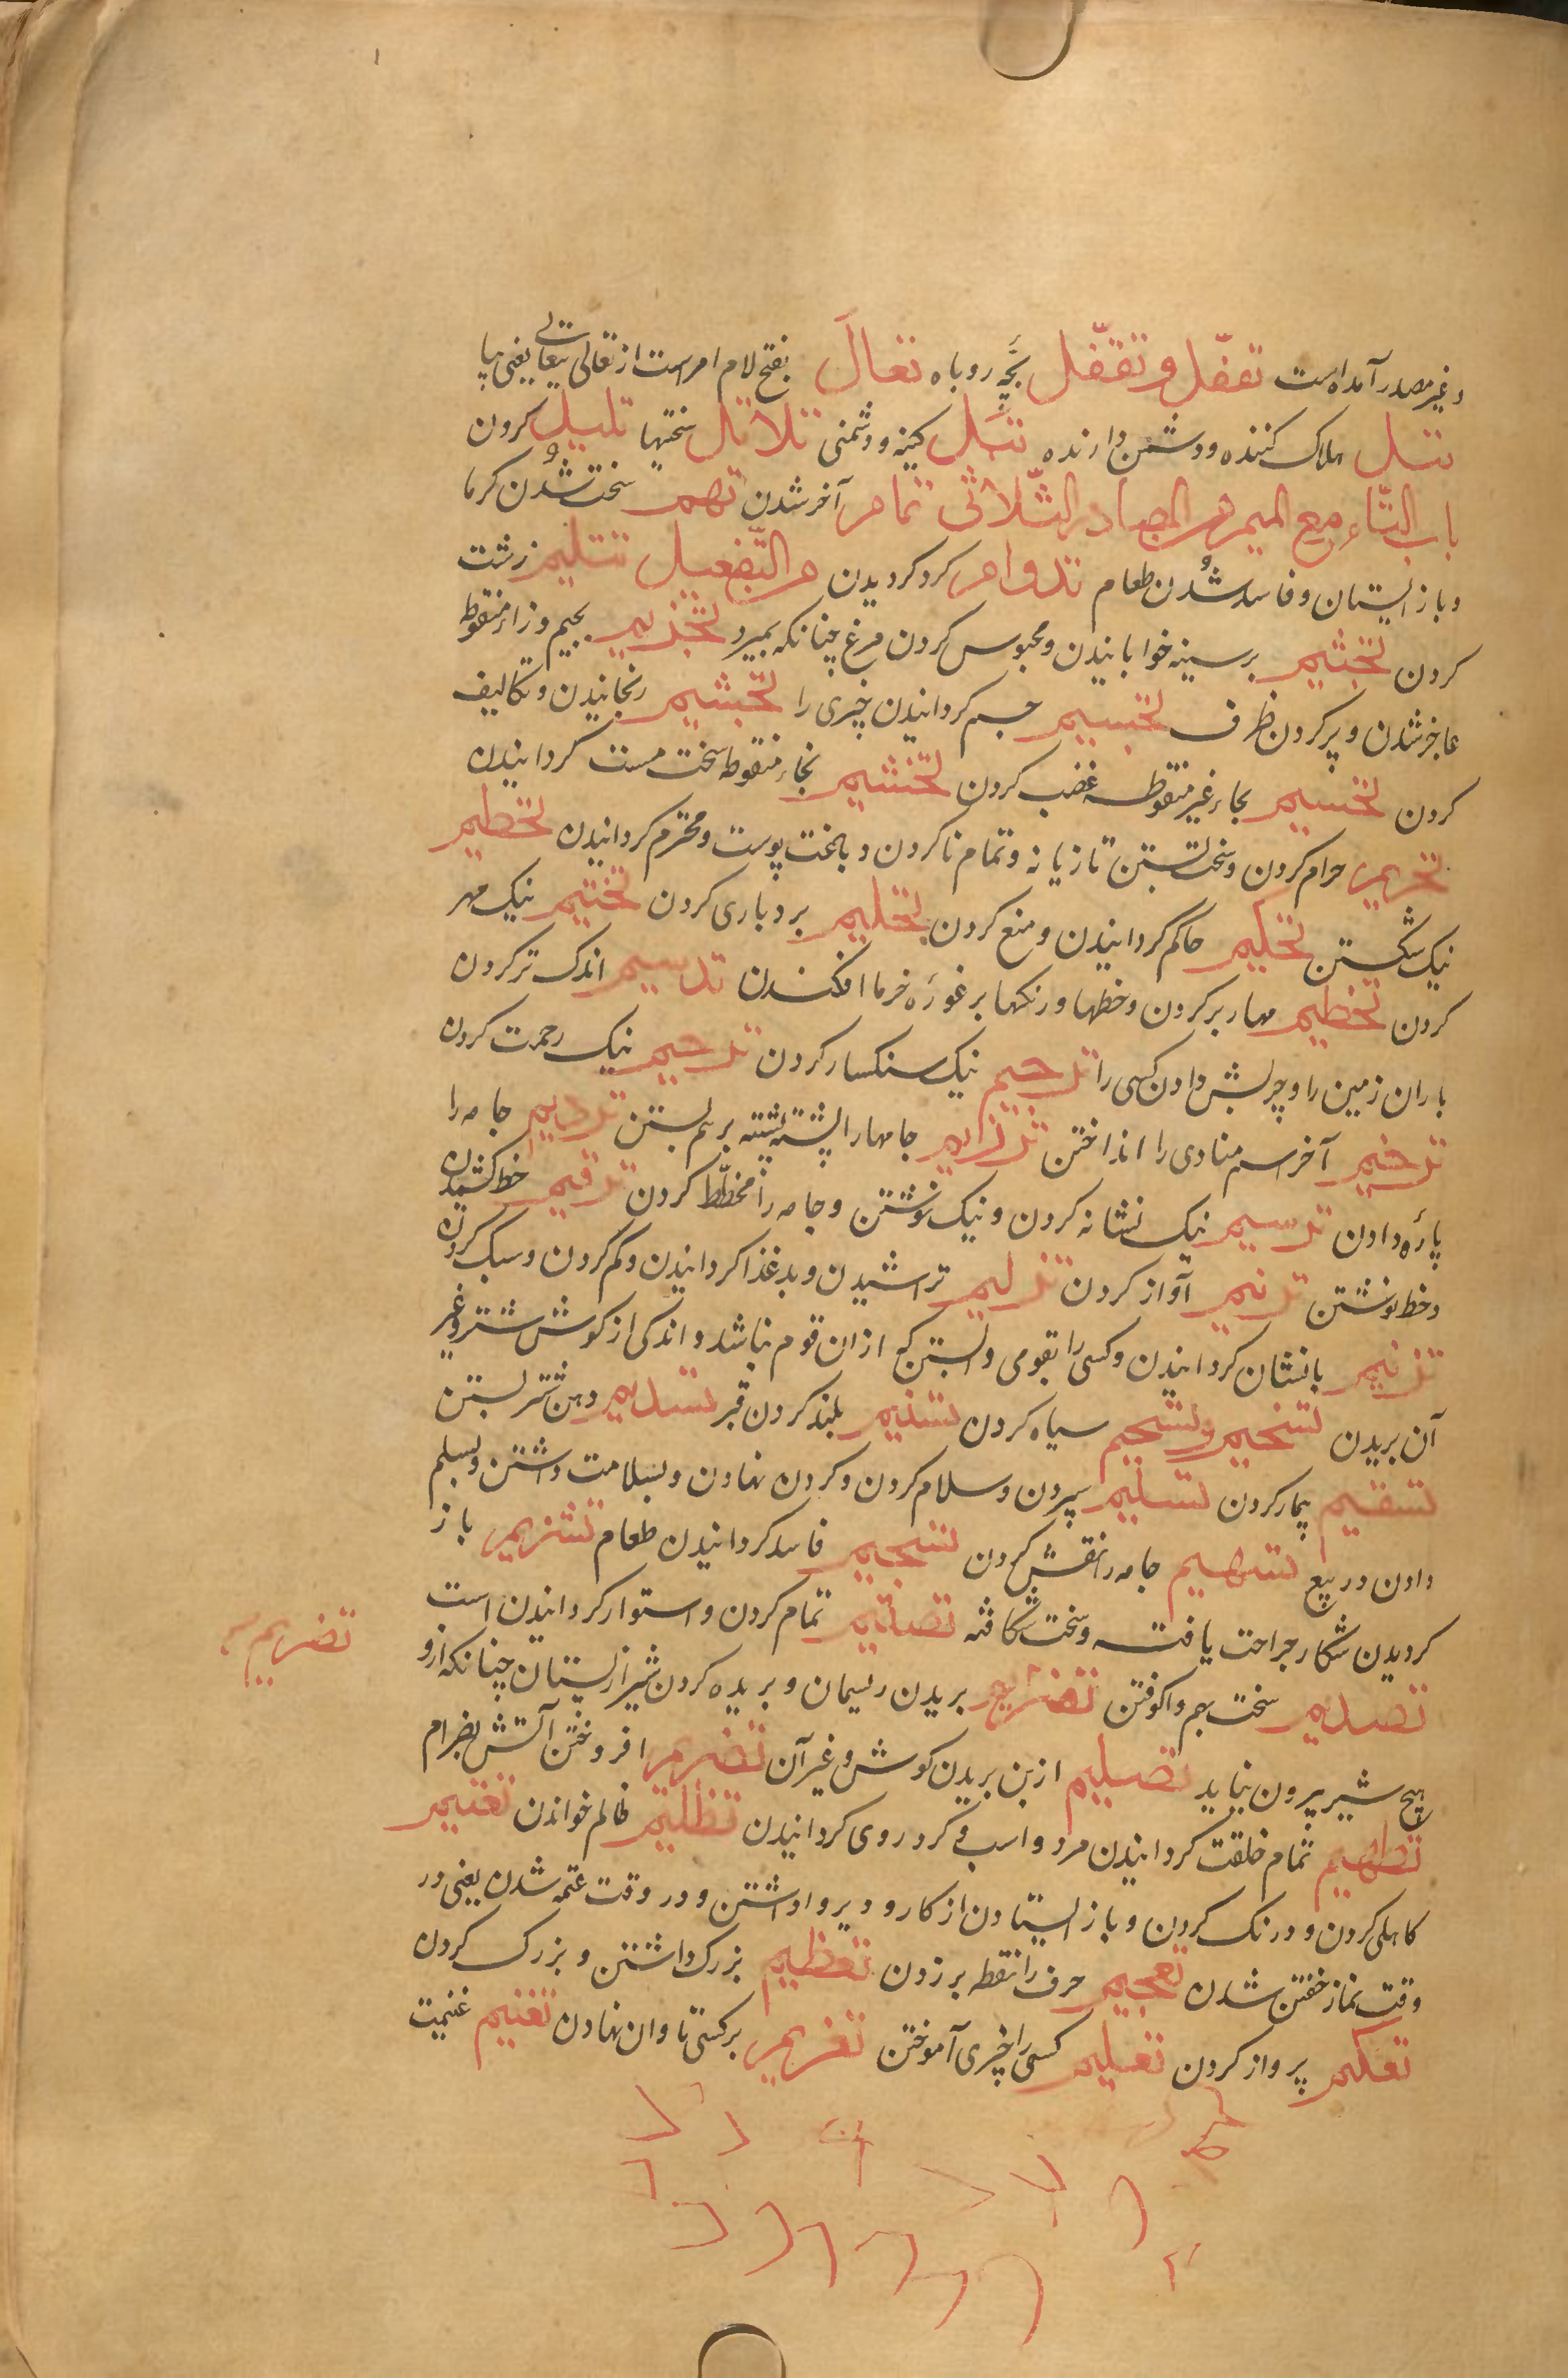 وغیر مصدر آمده است تتفّل و تقفّل بچّهٔ روباه تعالَ بفتح لام امر است از تعالی یتعالی یعنی بیا
تتبل هلاک کننده و دشمن دارنده تبل کینه و دشمنی تلاتل سختیها تلبیل کردن
باب التّاء مع المیم من المصادر الثّلاثی تمام آخر شدن تهم سخت شدن گرما
وباز ایستادن و فاسد شدن طعام تدوام گرد گردیدن من التّفعیل تثلیم زشت
کردن تجثیم بر سینه خوابانیدن و محبوس کردن مرغ چنانکه بمیرد تجزیم بجیم وزاء منقوطه
عاجز شدن و پر کردن ظرف تجسیم جسم گردانیدن چیزی را تجشیم رنجانیدن و تکالیف
کردن تحشیم بحاء غیر منقوطه غضب کردن تخشیم بخاء منقوطه سخت مست گردانیدن
تحریم حرام کردن و سخت بستن تازیانه و تمام نا کردن دباغت پوست و محترم گردانیدن تحطیم
نیک شکستن تحکیم حاکم گردانیدن و منع کردن تحلیم بردباری کردن تختیم نیک مهر
کردن تخطیم مهار بر کردن و خطها و رنگها بر غورهٔ خرما افکندن تدسیم اندک تر کردن
باران زمین را و چربش دادن کسی را ترجیم نیک سنگسار کردن ترحیم نیک رحمت کردن
ترخیم آخر اسم منادی را انداختن ترزیم جامها را پشته پشته بر هم بستن تردیم جامه را
پاره دادن ترسیم نیک نشانه کردن و نیک نوشتن و جامه را مخطّط کردن ترقیم خط کشیدن
وخط نوشتن ترنیم آواز کردن تزلیم تراشیدن و بد غذا گردانیدن و کم کردن و سبک کردن
تزنیم بانشان گردانیدن و کسی را بقومی وابستن که ازان قوم نباشد و اندکی از گوش شتر و غیر
آن بریدن تسخیم و تسحیم سیاه کردن تسنیم بلند کردن قبر تسدیم دهن شتر بستن
تسقیم بیمار کردن تسلیم سپردن و سلام کردن و گردن نهادن و بسلامت داشتن و بسلم
دادن در بیع تسهیم جامه را نقش کردن تشحیم فاسد گردانیدن طعام تشریم باز
گردیدن شکار جراحت یافته و سخت شکافته تصتیم تمام کردن و استوار گردانیدن است
تصدیم سخت بهم واکوفتن تصریم بریدن ریسمان و بریده کردن شیر از پستان چنانکه ازو
هیچ شیر بیرون نیاید تصلیم از بن بریدن گوش و غیر آن تضریم افروختن آتش بضرام
تضریم
تطهیم تمام خلقت گردانیدن مرد و اسب و گرد روی گردانیدن تظلیم ظالم خواندن تعتیم
کاهلی کردن و درنگ کردن و باز ایستادن از کار و دیر واداشتن و در وقت عتمه شدن یعنی در
وقت نماز خفتن شدن تعجیم حرف را نقطه بر زدن تعظیم بزرگ داشتن و بزرگ کردن
تعکیم پرواز کردن تعلیم کسی را چیزی آموختن تغریم بر کسی تاوان نهادن تغنیم غنیمت